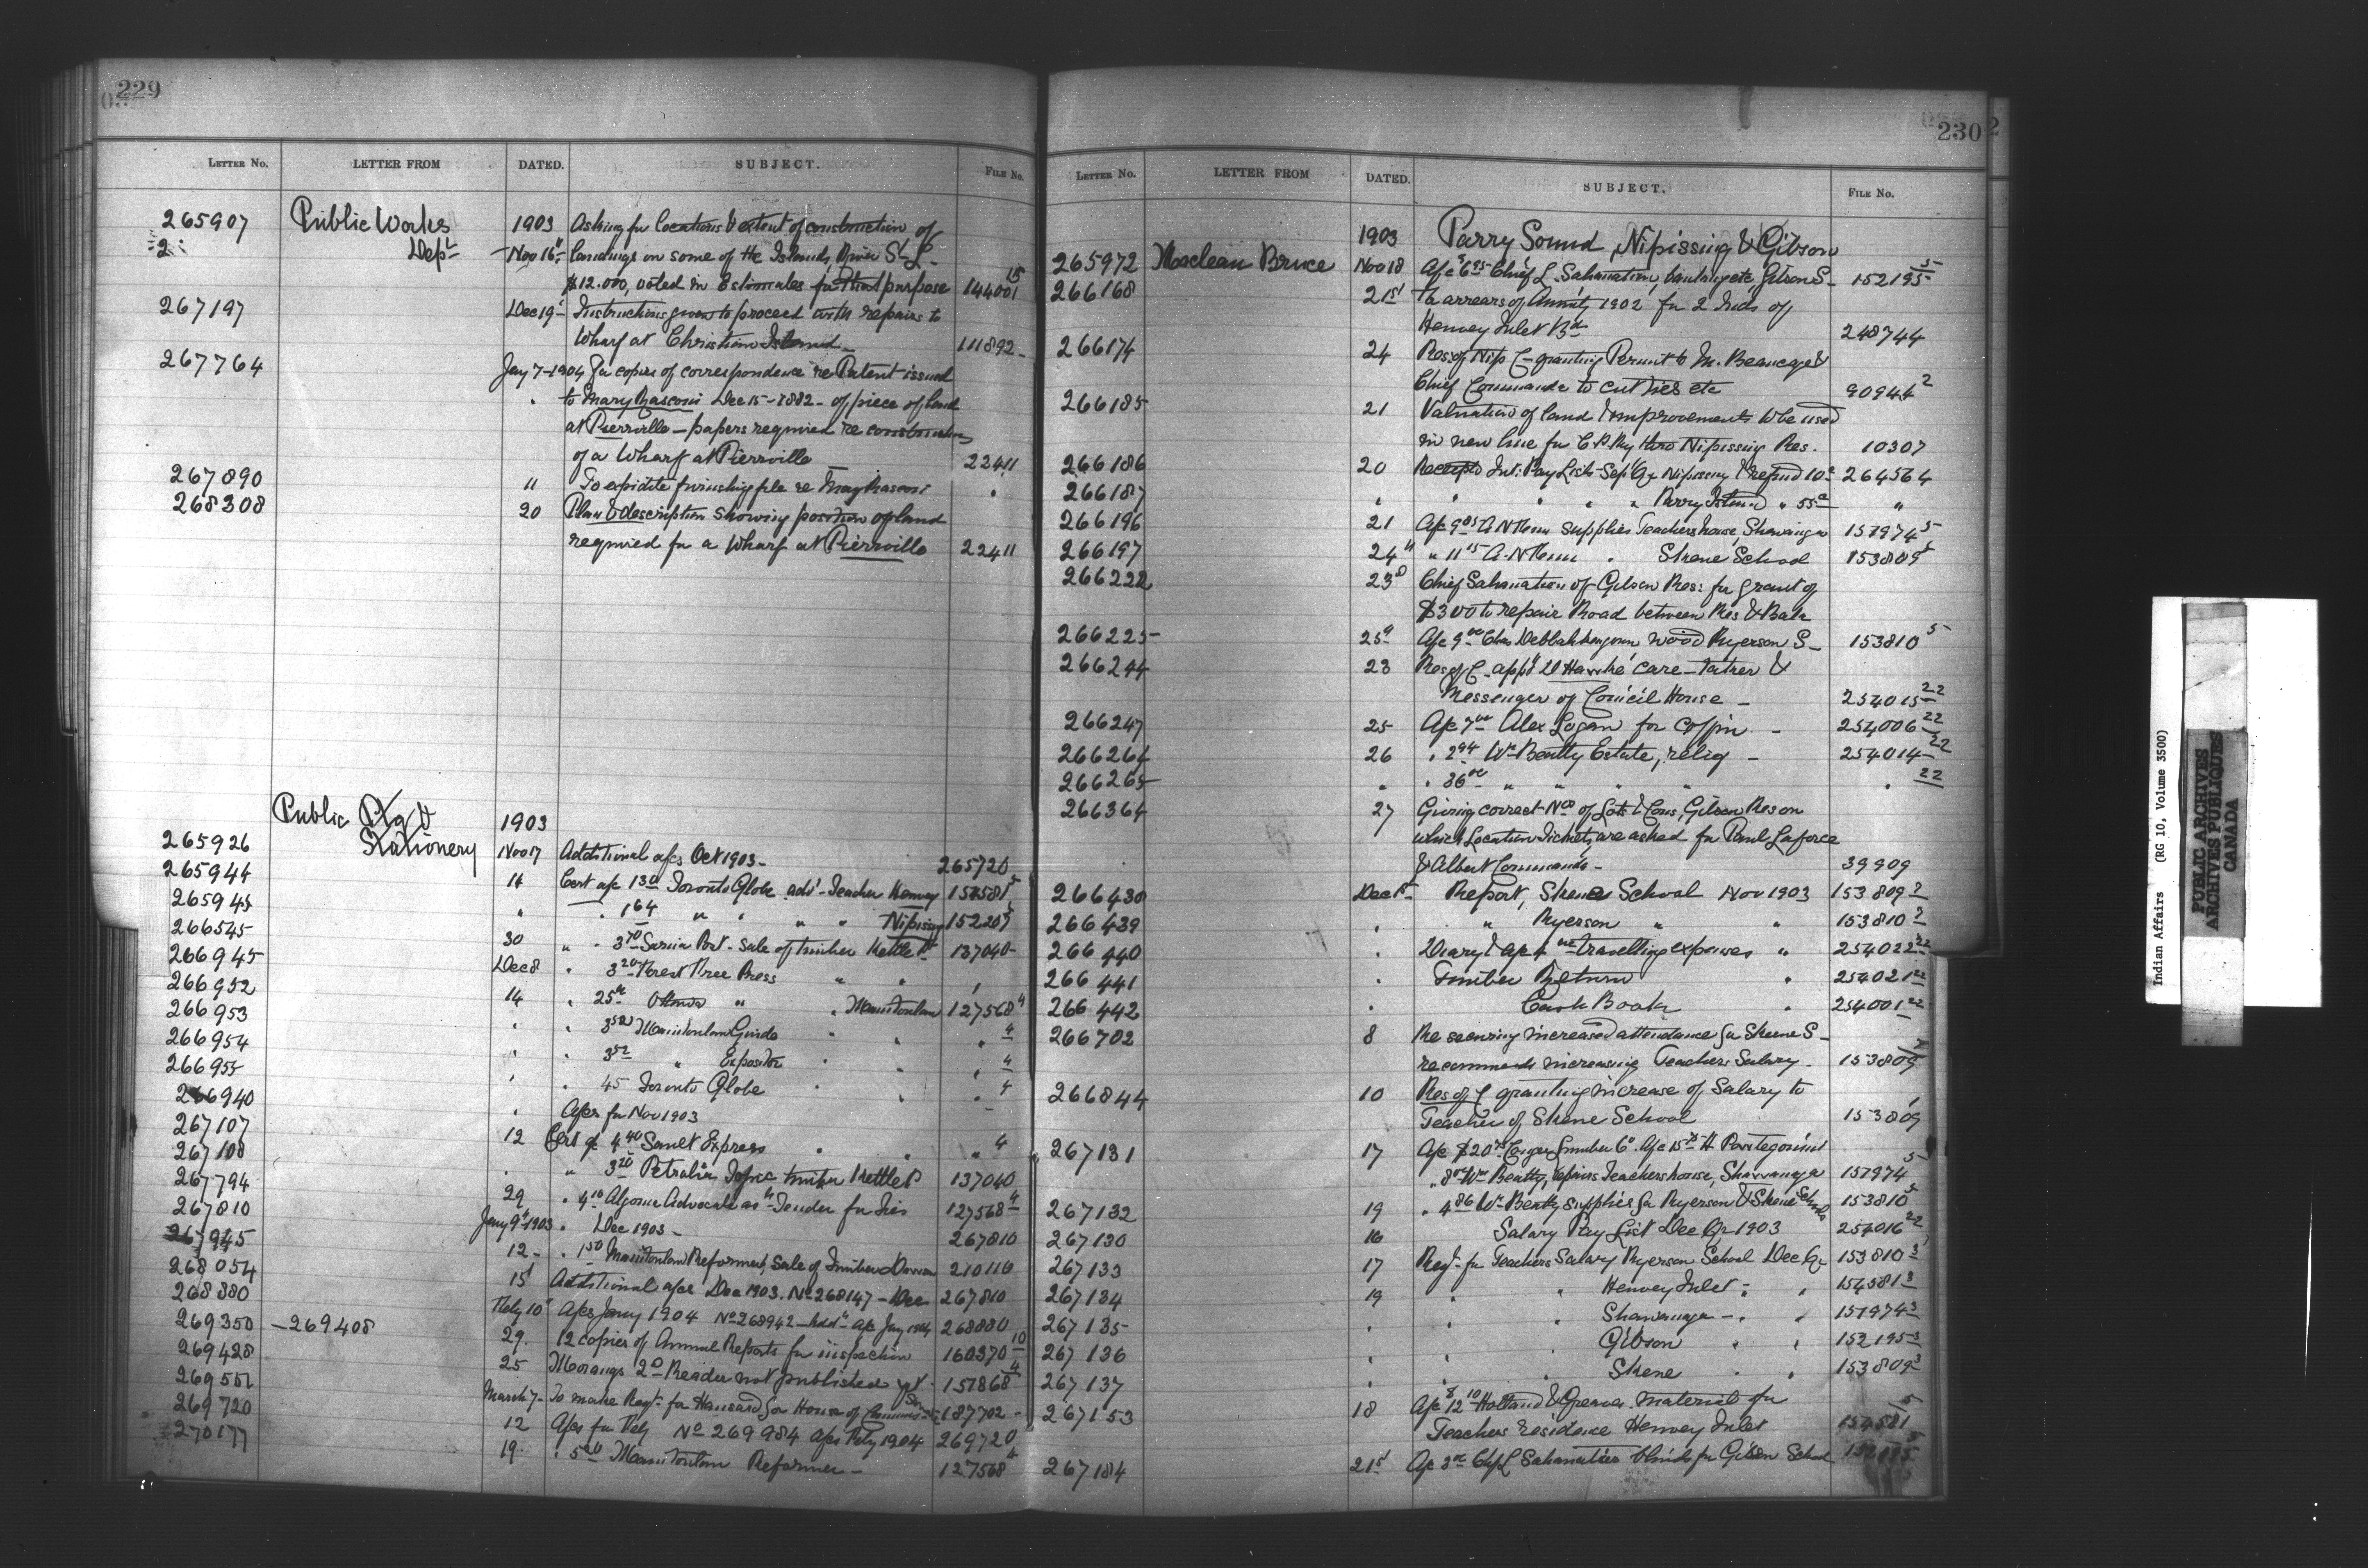 229
LETTER No. LETTER FROM DATED. SUBJECT. FILE No.
265907 Public Works 1903 Asking for locations & extent of construction of
2 Dept Nov 16 landings on some of the Islands, River St L.
$12.000, voted in Estimates for that purpose 144001 15
267197 Dec 19 Instructions given to proceed with repairs to
Wharf at Christian Island 111892
267764 Jany 7-1904 For copies of correspondence re Patent issued
to Mary Rascon Dec 15-1882 - of piece of land
at Pierrville - papers required re construction
of a Wharf at Pierrville 22411
267890 11 To expidite furnishing file re Mary Rascon "
268308 20 Plan & description showing position of land
required for a Wharf at Pierrville 22411
Public Ptg &
Stationery 1903
265926 Nov 17 Additional a/cs Oct 1903 265720
265944 14 Cert a/c 130 Toronto Globe advt Teacher Henvey 154581 5
265945 " " 164 " " " " Nipissing 152205
266545 30 " " 370 Sarnia Post - Sale of timber Kettle Pt 137040
266945 Dec 8 " 320 Forest Free Press " " "
266952 14 " 25 Ottawa " " Manitoulin 127568 4
266953 " " 352 Manitoulin Guide " " " 4
266954 " " 352 " Expositor " " " 4
266955 " " 45 Toronto Globe " " " 4
266940 " A/cs for Nov 1903
267107 12 Cert a/c 440 Sault Express " " " 4
267108 " " 320 Petrolia Topic timber Kettle P 137040
267794 29 " 410 Algoma Advocate as to Tender for Ties 127568 4
267810 Jany 9 1903 " Dec 1903 - 267810
267945 12 " 150 Manitoulin Reformer, Sale of Timber Dawson 210116
268054 15 Additional a/cs Dec 1903. No 268147 - Dec 267810
268880 Feby 10 A/cs Jany 1904 No 268942 - Addl a/c Jany 1904 268880
269350 - 269408 29 12 copies of Annual Reports for inspection 160370 10
269428 25 Morangs 2d Reader not published yet 157868 4
269551 March 7 To make Reqt for Hansard for House of Commons 187702
269720 12 A/cs for Feby No 269984 A/cs Feby 1904 269720
270177 19 " 500 Manitoulin Reformer 127568 4
230
LETTER No. LETTER FROM DATED. SUBJECT. FILE No.
1903 Parry Sound, Nipissing & Gibson
265972 Maclean Bruce Nov 18 A/c $6.95 Chief L. Sahanatien, painting etc, Gibson S 152195 5
266168 21st To arrears of Annuity 1902 for 2 Inds of
Henvey Inlet Bd 248744
266174 24 Res: of Nip C granting Permit to M. Beaucage &
Chief Commanda to cut ties etc 90944 2
266185 21 Valuation of land & improvements to be used
in new line for C.P. Ry thro Nipissing Res. 10307
266186 20 Receipts Int: Pay Lists - Sept Qr Nipissing & refund 10c 264564
266187 " " " " " Parry Island " 55c "
266196 21 A/c 985 A.N. Fenn supplies Teachers house, Shawanaga 151974 5
266197 24 " 1115 A.N. Fenn " Skene School 153809 5
266222 23d Chief Sahanatien of Gibson Res: for grant of
$300 to repair Road between Res & Bala
266225 25 A/c 900 Chas Debbahbengoun wood Ryerson S 153810 5
266244 23 Res of C. appg D Hawke care-taker &
Messenger of Council House 254015 22
266247 25 A/c 700 Alex Logan for coffin 254006 22
266264 26 " 294 Wm Beatty Estate, relief 254014 22
266265 " " 3600 " " " " " 22
266364 27 Giving correct Nos of Lots & Cons, Gibson Res on
which Location Tickets are asked for Paul Laforce
& Albert Commanda 39909
266430 Dec 1st Report, Skene School Nov 1903 153809 2
266439 " " Ryerson " " 153810 2
266440 " Diary & a/c travelling expenses " 254022 22
266441 " Timber Return " 254021 22
266442 Cash Book " 254001 22
266702 8 Re securing increased attendance for Skene S
recommends increasing Teachers Salary 153809
266844 10 Res of C granting increase of Salary to
Teacher of Skene School 153809
267131 17 A/c $20 Conger Lumber Co. A/c 15 H
" 8 Wm Beatty, repairs Teachers house, Shawanaga 151974 5
267132 19 " 486 Wm Beatty supplies for Ryerson & Skene Schools 153810 5
267130 16 Salary Pay List Dec Qr 1903 254016 22
267133 17 Reqt for Teachers Salary Ryerson School Dec Qr 153810 3
267134 19 " " Henvey Inlet " " 154581 3
267135 " " " Shawanaga " " 151974 3
267136 " " " Gibson " " 152195 3
267137 " " " Skene " " 153809 3
267153 18 A/c 12 10 Holland & Graves material for
Teachers residence Henvey Inlet 154581 5
267184 21st A/c 3 Chf L Sahanatien blinds for Gibson School 152195 5
Indian Affairs (RG 10, Volume 3500)
PUBLIC ARCHIVES
ARCHIVES PUBLIQUES
CANADA